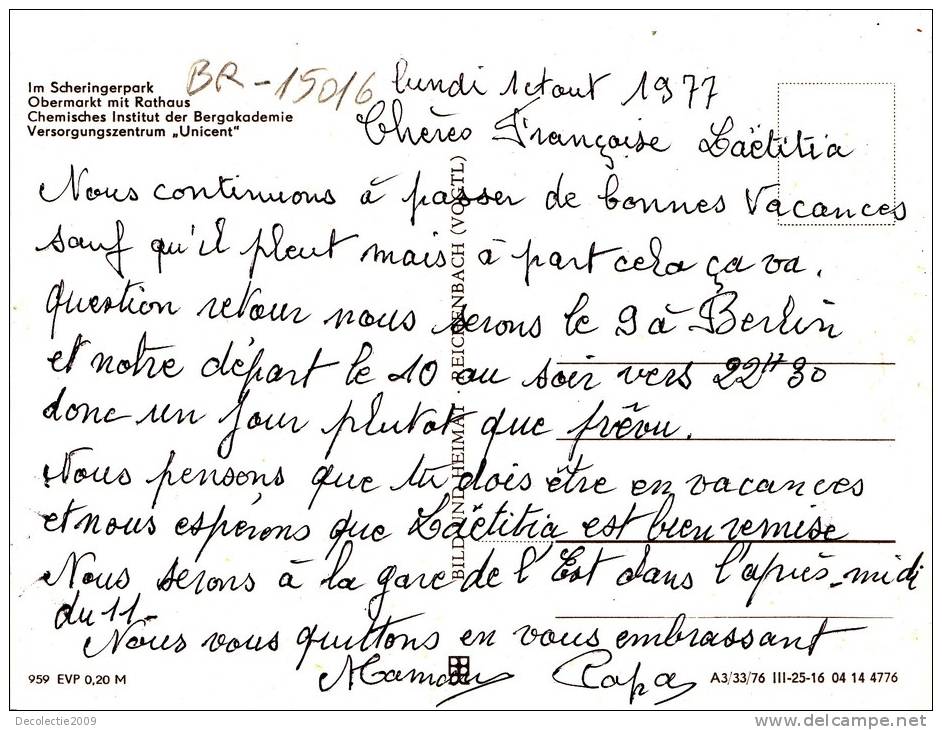 Im Scheringerpark
Obermarkt mit Rathaus
Chemisches Institut der Bergakademie
Versorgungszentrum „Unicent"
BR-15016
lundi 1 etout 1977
Chères Françoise Laëtitia
Nous continuons à passer de bonnes Vacances
sauf qu'il pleut mais à part cela ça va.
question retour nous serons le 9 à Berlin
et notre départ le 10 au soir vers 22H30
donc un jour plutot que frêvu.
Nous pensons que tu dois être en vacances
et nous espérons que Laëtitia est bien remise
Nous serons à la gare de l'Est dans l'après-midi
du 11-
Nous vous quittons en vous embrassant
Maman Papa
BILD UND HEIMAT · REICHENBACH (VOGTL)
959 EVP 0,20 M
A3/33/76 III-25-16 04 14 4776
Decolectie2009
www.delcampe.net